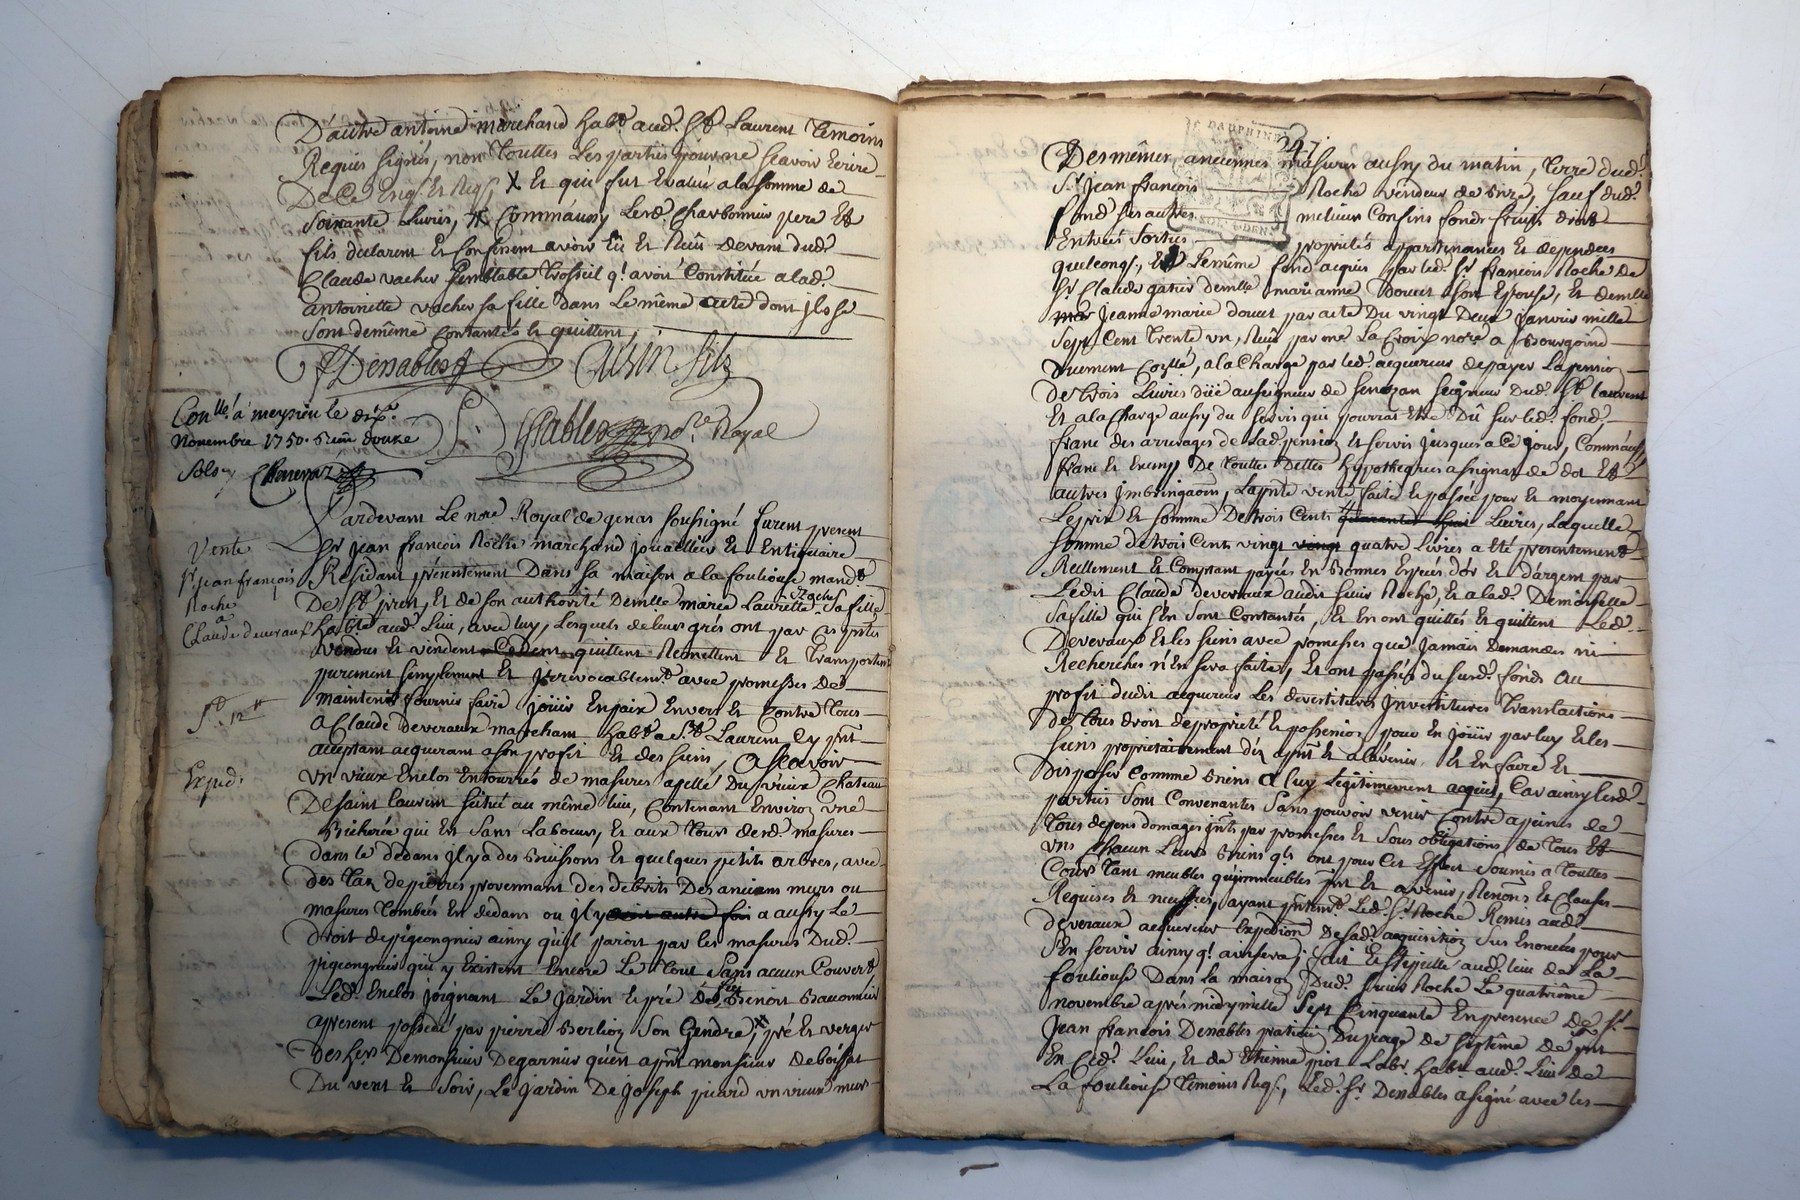 D'autre antoine marchand habt. aud. St Laurent temoins
Requis signés, non touttes Les parties pour ne scavoir Ecrire
De Ce Enq. Et Reqs. X Et qui fut Evalué a la somme de
soixante Livres, Commaussy Lesd. Charbonnier pere Et
fils declarent Et Confessent avoir Eü Et Reçu devant dud.
Claude vacher semblable trosseil q'. avoit Constitué a lad.
antoinette vacher sa fille dans Le même acte dont jls se
sont de même contantés Et quittent
Denables
fils
Conllé. a meysieu le dix.
novembre 1750. Reçu douze
sols
Dhables no.re Royal
Pardevant Le nore Royal de genas soussigné furent present
Vente
Sr jean francois Roche marchand jouaillier Et Entiquaire
Sr jean francois
Roche
a
Claude deveraux
Residant présentement Dans sa maison a la fouliouse mandt
De St priest, Et de son authorité Demlle marie Laurette Roche Sa fille
habte aud. Lieu, avec luy, Lesquels de leurs grés ont par Ces pntes
vendus Et vendent quittent Remettent Et transportent
purement simplement Et jrrevocablemt. avec promesses de
maintenir fournir faire joüir En paix Envers Et Contre tous
a Claude deveraux marchant habt a St. Laurent Cy pnt
aceptant aquerant a son profit Et des siens, a scavoir
Expéd.
un vieux Enclos Entourrés de masures apellé Du vieux chateau
De saint laurent scitué au même lieu, Contenant Environ une
Bicherée qui Est sans Labour, Et aux tour desd. masures
dans le dedans il y a des Buissons Et quelques petits arbres, avec
des tas de pierres provennant des debris Des anciens murs ou
masures tombées En dedans ou jl y a aussy Le
Droit de pigeongnier ainsy qu'il paroit par les masures Dud.
pigeongnier qui y Existent Encore Le tout Sans aucun Couvert,
Led. Enclos joignant Le jardin Et pré de Benoit
apresent possedé par pierre Berlioz Son Gendre, pré Et verger
Des hers De monsieur Degarnier qu'est apnt monsieur de boissat
Du vent Et Soir, Le jardin De joseph picard un vieux mur
LE DAUPHINE
247
SOL 4 DEN.
Des mêmes anciennes masures aussy du matin, terre dud.
Sr. jean francois Roche vendeur de Bize, sauf dud.
fond ses autres meilleurs Confins fonds fruits droits
Entrées Sorties proprietés appartenances Et dependces
quelconqs., Et Le même fond acquis par led. Sr francois Roche de
Sr. Claude gatier demlle marianne Doucet son Epouse, Et demlle
jeanne marie doucet par acte Du vingt Deux janvier mille
sept Cent trente un, Reçu par me La Croix nore a Bourgoind
duement Conllé, a la Charge par led. acquereur de payer La pension
de trois Livres düe au seigneur de Senozan seigneur Dud. St laurent
Et a la Charge aussy du servis qui pourrat Etre Dû sur led. fond,
franc des arrerages de lad. pension Et servis jusques a Ce jour, Commaussy
franc Et Exemp De touttes Dettes hypotheques assignat de dot Et
autres jmbringaons, La pnte vente faite Et passée pour Et moyennant
Le prix Et somme De trois Cents Livres, Laquelle
somme de trois Cents vingt quatre Livres a Eté presentement
Reellement Et Comptant payée En Bonnes Especes d'or Et d'argent par
Ledit Claude deveraux audit sieur Roche, Et a lad. Demoiselle
sa fille qui s'En sont Contantés, Et En ont quittés Et quittent Led.
Deveraux Et les siens avec promesses que jamais Demandes ni
Recherches n'En sera faite, Et ont passés du susd. fonds au
profit dudit acquereur Les devestitures Jnvestitures translactions
de tous droit de proprieté Et possession pour En joüir par luy Et les
siens proprietairement dez apnt Et a l'avenir, Et En faire Et
disposer Comme Biens a luy legitimement acquis, Car ainsy Lesd.
parties sont Convenantes Sans pouvoir venir Contre a peines de
tous depens domages jnts par promesses Et sous obligations de tous Et
uns Chacun Leurs Biens qls ont pour Cet Effet soumis a touttes
Cours tant meubles qu'jmmeubles pnt Et avenir, Renons Et Clauses
Requises Et necessres, ayant pntemt. Led. Sr. Roche Remis aud.
deveraux acquereur Expedion de sad. acquisition sus Enoncée pour
s'En servir ainsy q'. avisera; fait Et stipullé aud. lieu de La
fouliouse Dans la maison Dud. sieur Roche Le quatrième
novembre après midy mille sept Cinquante En presence de Sr
jean francois Denables praticien Du prage de septême de pnt
En Ced. Lieu, Et de Etienne piot Labr. habt aud. Lieu de
La fouliouse temoins Reqs., Led. Sr. Denables a signé avec les